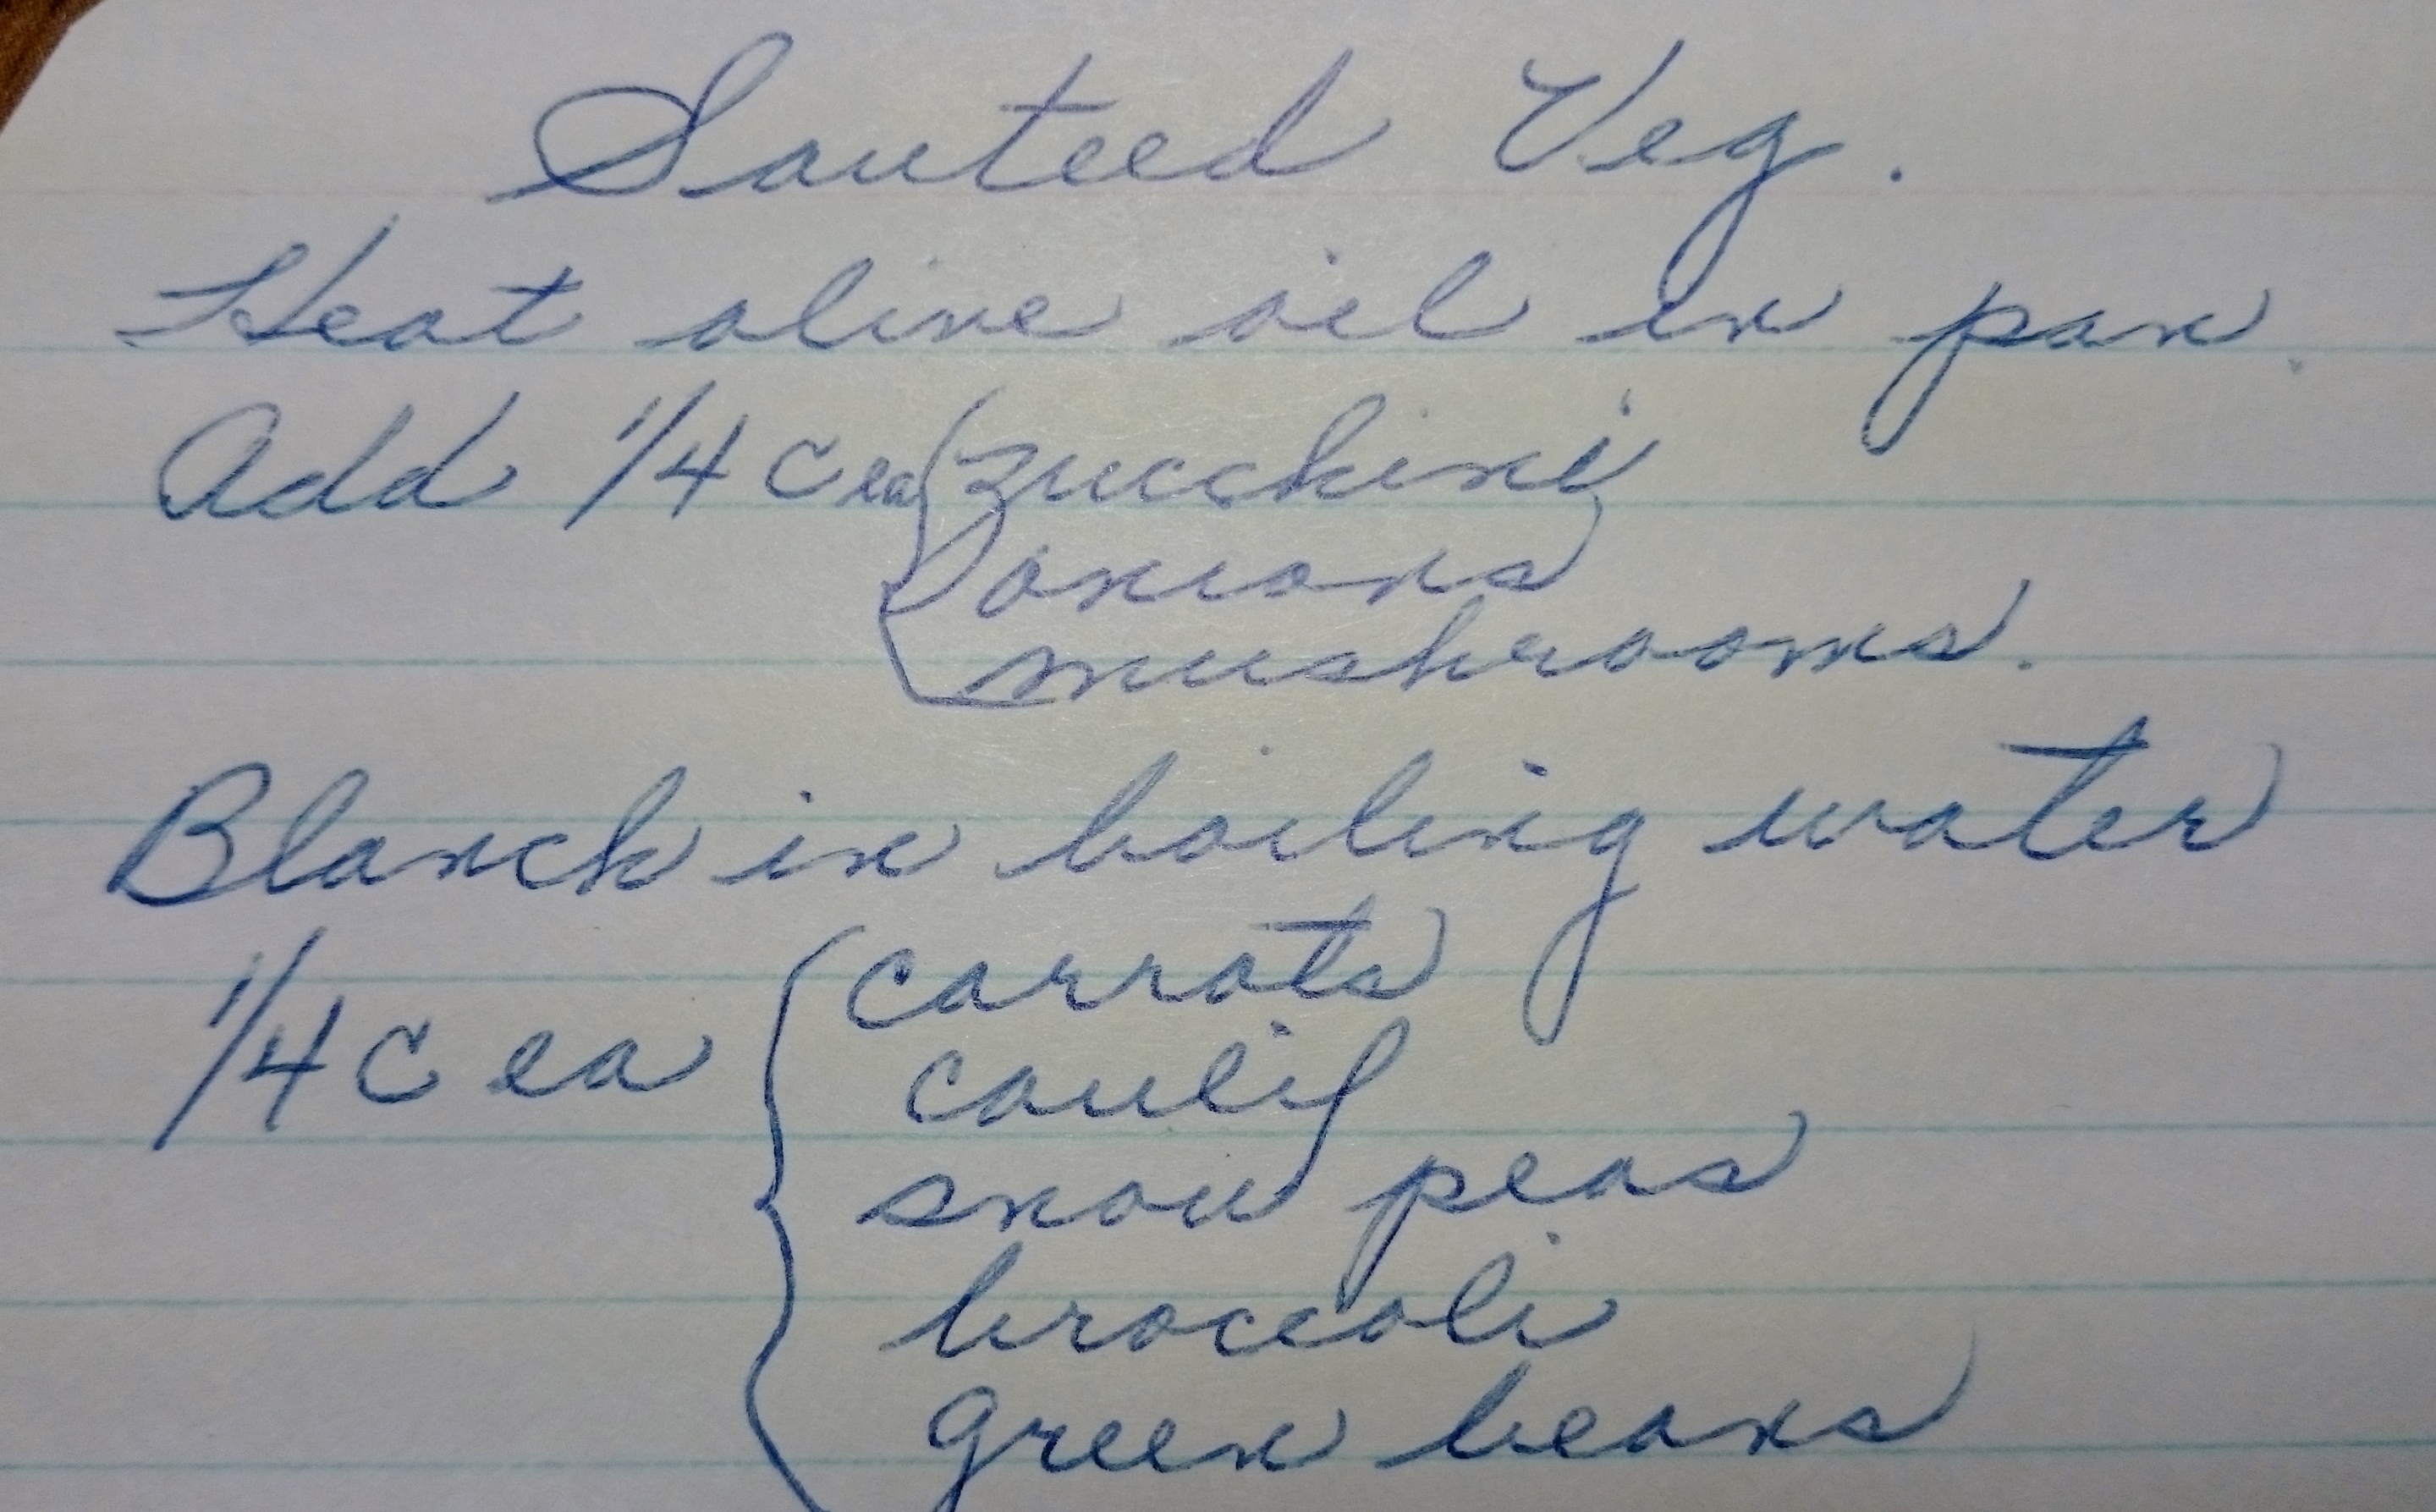 Sauteed Veg.
Heat olive oil in pan.
Add 1/4 c ea { zucchini
onions
mushrooms.
Blanch in boiling water
1/4 c ea { carrots
caulif
snow peas
broccoli
green beans